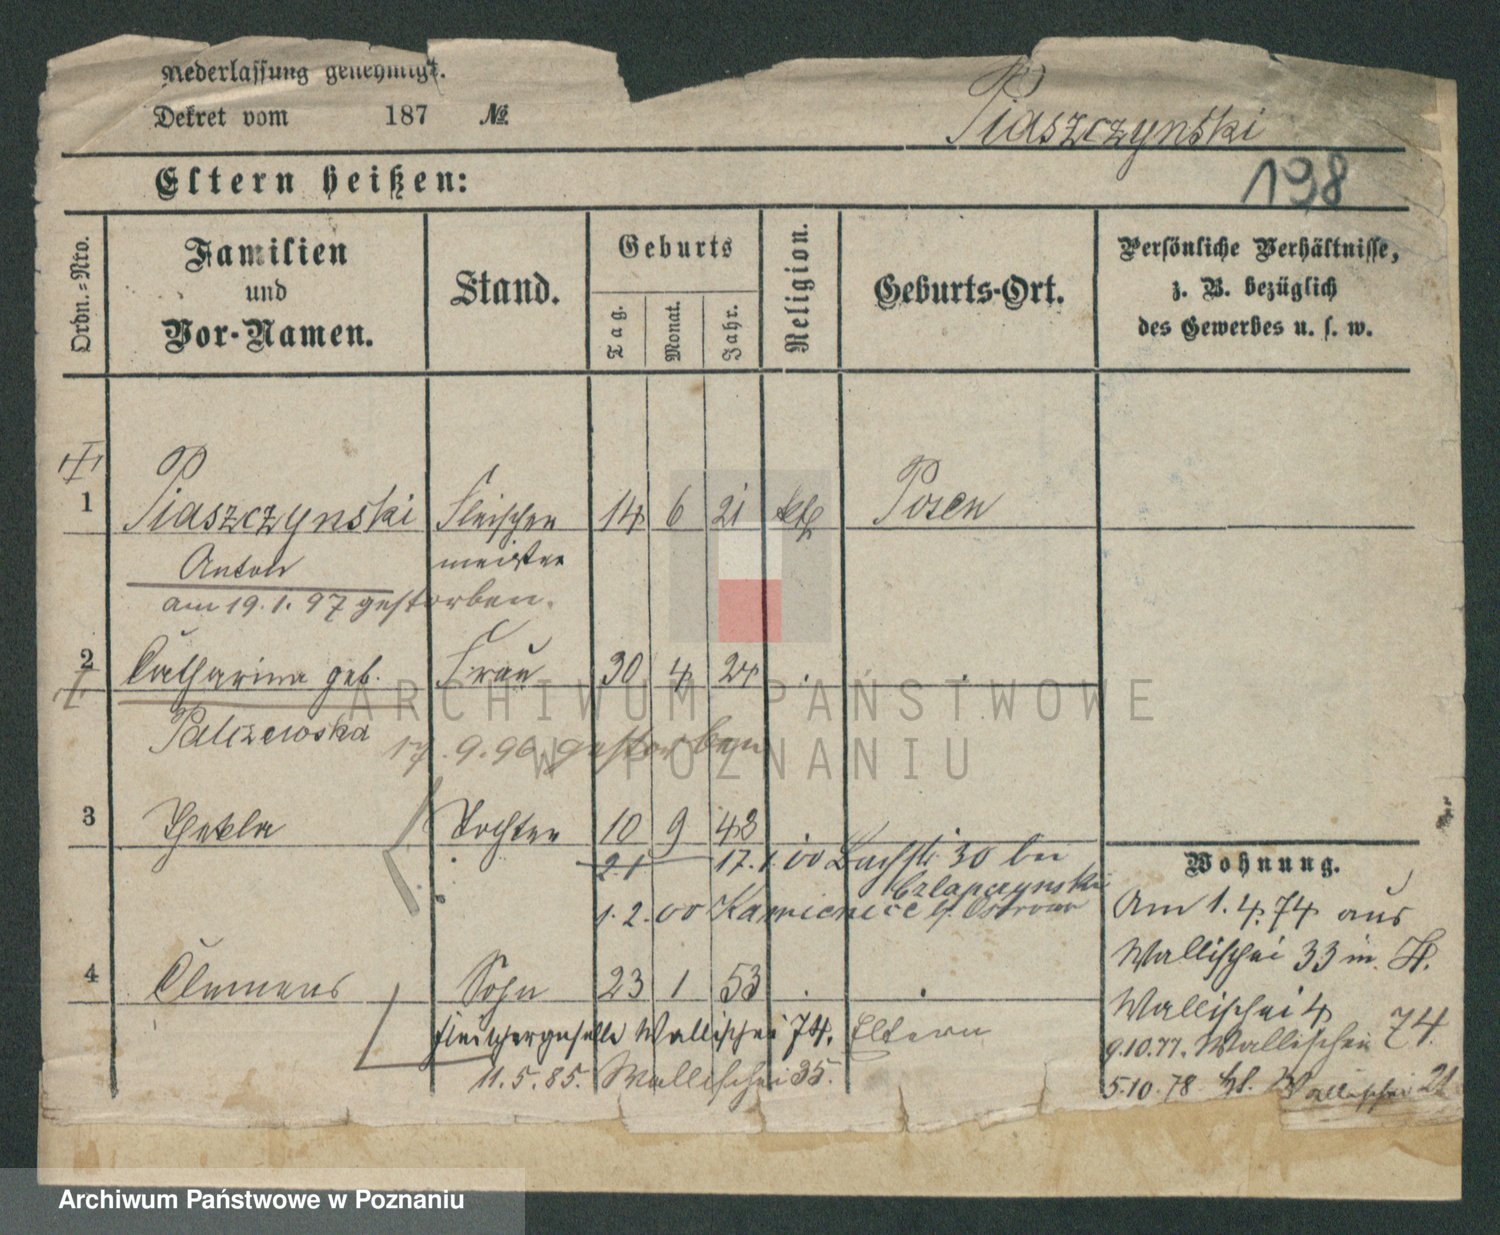 Niederlassung genehmigt.
Dekret vom 187 №
Piaszczynski
Eltern heißen:
198
Ordn.-Nro.
Familien und Vor-Namen.
Stand.
Geburts
Tag.
Monat.
Jahr.
Religion.
Geburts-Ort.
Persönliche Verhältnisse,
z. B. bezüglich
des Gewerbes u. s. w.
1 Piaszczynski Fleischer 14 6 21 kth Posen
Anton meister
am 19.1.97 gestorben.
2 Catharina geb. Frau 30 4 24
Palczewska 17.9.96 gestorben
3 Thekla Tochter 10 9 48
21 17.1.00 Bachstr 30 bei
1.2.00 Kamienice Ostrowo
4 Clemens Sohn 23 1 53
Fleischergeselle Wallischei 74. Eltern
11.5.85. Wallischei 35.
Wohnung.
Am 1.4.74 aus
Wallischei 33 in
Wallischei 4
9.10.77. Wallischei 74.
5.10.78 Wallischei 21
ARCHIWUM PAŃSTWOWE
W POZNANIU
Archiwum Państwowe w Poznaniu